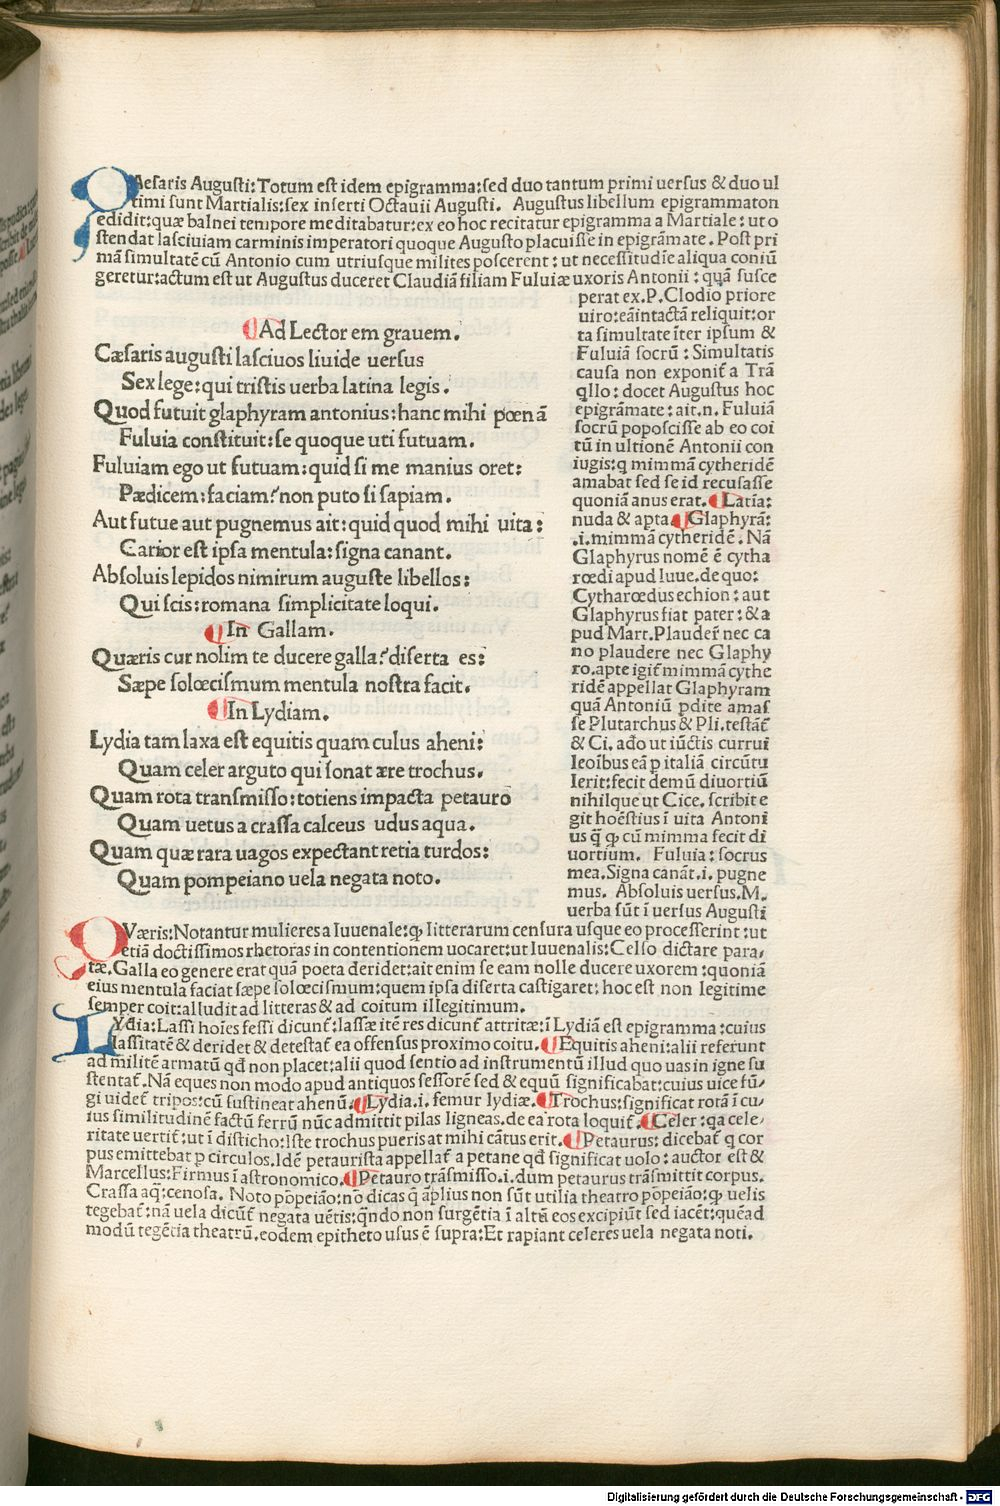 QAesaris Augusti: Totum est idem epigramma: sed duo tantum primi uersus & duo ul
timi sunt Martialis: sex inserti Octauii Augusti. Augustus libellum epigrammaton
edidit: quæ balnei tempore meditabatur: ex eo hoc recitatur epigramma a Martiale: ut o
stendat lasciuiam carminis imperatori quoque Augusto placuisse in epigrāmate. Post pri
mā simultatē cū Antonio cum utriusque milites poscerent: ut necessitudie aliqua coniū
geretur: actum est ut Augustus duceret Claudiā filiam Fuluiæ uxoris Antonii: quā susce
perat ex. P. Clodio priore
uiro: eā intactā reliquit: or
ta simultate īter ipsum &
Fuluiā socrū: Simultatis
causa non exponit̄ a Trā
qllo: docet Augustus hoc
epigrāmate: ait. n. Fuluiā
socrū poposcisse ab eo coi
tū in ultionē Antonii con
iugis: q mimmā cytheridē
amabat sed se id recusasse
quoniā anus erat. ¶ Latīa:
nuda & apta. ¶ Glaphyrā:
.i. mimmā cytheridē. Nā
Glaphyrus nomē ē cytha
rœdi apud Iuue. de quo:
Cytharœdus echion: aut
Glaphyrus fiat pater: & a
pud Mart. Plauder̄ nec ca
no plaudere nec Glaphy
ro. apte igit̄ mimmā cythe
ridē appellat Glaphyram
quā Antoniū pdite amas
se Plutarchus & Pli. testāt̄
& Ci. ado ut iūctis currui
leoībus eā p italiā circūtu
lerit: fecit demū diuortiū
nihilque ut Cice. scribit e
git hoēstius ī uita Antoni
us q̄ ꝙ cū mimma fecit di
uortium. Fuluia: socrus
mea. Signa canāt. i. pugne
mus. Absoluis uersus. M.
uerba sūt ī uersus Augusti
¶ Ad Lectorem grauem.
Cæsaris augusti lasciuos liuide uersus
Sex lege: qui tristis uerba latina legis.
Quod futuit glaphyram antonius: hanc mihi pœnā
Fuluia constituit: se quoque uti futuam.
Fuluiam ego ut futuam: quid si me manius oret:
Pædicem: faciam? non puto si sapiam.
Aut futue aut pugnemus ait: quid quod mihi uita:
Carior est ipsa mentula: signa canant.
Absoluis lepidos nimirum auguste libellos:
Qui scis: romana simplicitate loqui.
¶ In Gallam.
Quæris cur nolim te ducere galla? diserta es:
Sæpe solœcismum mentula nostra facit.
¶ In Lydiam.
Lydia tam laxa est equitis quam culus aheni:
Quam celer arguto qui sonat ære trochus.
Quam rota transmisso: totiens impacta petauro
Quam uetus a crassa calceus udus aqua.
Quam quæ rara uagos expectant retia turdos:
Quam pompeiano uela negata noto.
QVæris: Notantur mulieres a Iuuenale: ꝙ litterarum censura usque eo processerint: ut
etiā doctissimos rhetoras in contentionem uocaret: ut Iuuenalis: Celso dictare para/
tæ. Galla eo genere erat quā poeta deridet: ait enim se eam nolle ducere uxorem: quoniā
eius mentula faciat sæpe solœcismum: quem ipsa diserta castigaret: hoc est non legitime
semper coit: alludit ad litteras & ad coitum illegitimum.
LYdia: Lassi hoīes fessi dicunt̄: lassæ itē res dicunt̄ attritæ: ī Lydiā est epigramma: cuius
lassitatē & deridet & detestat̄ ea offensus proximo coitu. ¶ Equitis aheni: alii referunt
ad militē armatū qđ non placet: alii quod sentio ad instrumentū illud quo uas in igne su
stentat̄. Nā eques non modo apud antiquos sessorē sed & equū significabat: cuius uice fū/
gi uidet̄ tripos: cū sustineat ahenū. ¶ Lydia. i. femur lydiæ. ¶ Trochus: significat rotā ī cu/
ius similitudinē factū ferrū nūc admittit pilas ligneas. de ea rota loquit̄. ¶ Celer: qa cele/
ritate uertit̄: ut ī disticho: Iste trochus pueris at mihi cātus erit. ¶ Petaurus: dicebat̄ q cor
pus emittebat p circulos. Idē petaurista appellat̄ a petane qđ significat uolo: auctor est &
Marcellus: Firmus ī astronomico. ¶ Petauro trāsmisso. i. dum petaurus trāsmittit corpus.
Crassa aq: cenosa. Noto pōpeiāo: nō dicas q̄ āplius non sūt utilia theatro pōpeiāo: ꝙ uelis
tegebat̄: nā uela dicūt̄ negata uētis: qn̄do non surgētia ī altū eos excipiūt sed iacēt: quēad
modū tegētia theatrū. eodem epitheto usus ē supra: Et rapiant celeres uela negata noti.
Digitalisierung gefördert durch die Deutsche Forschungsgemeinschaft - DFG